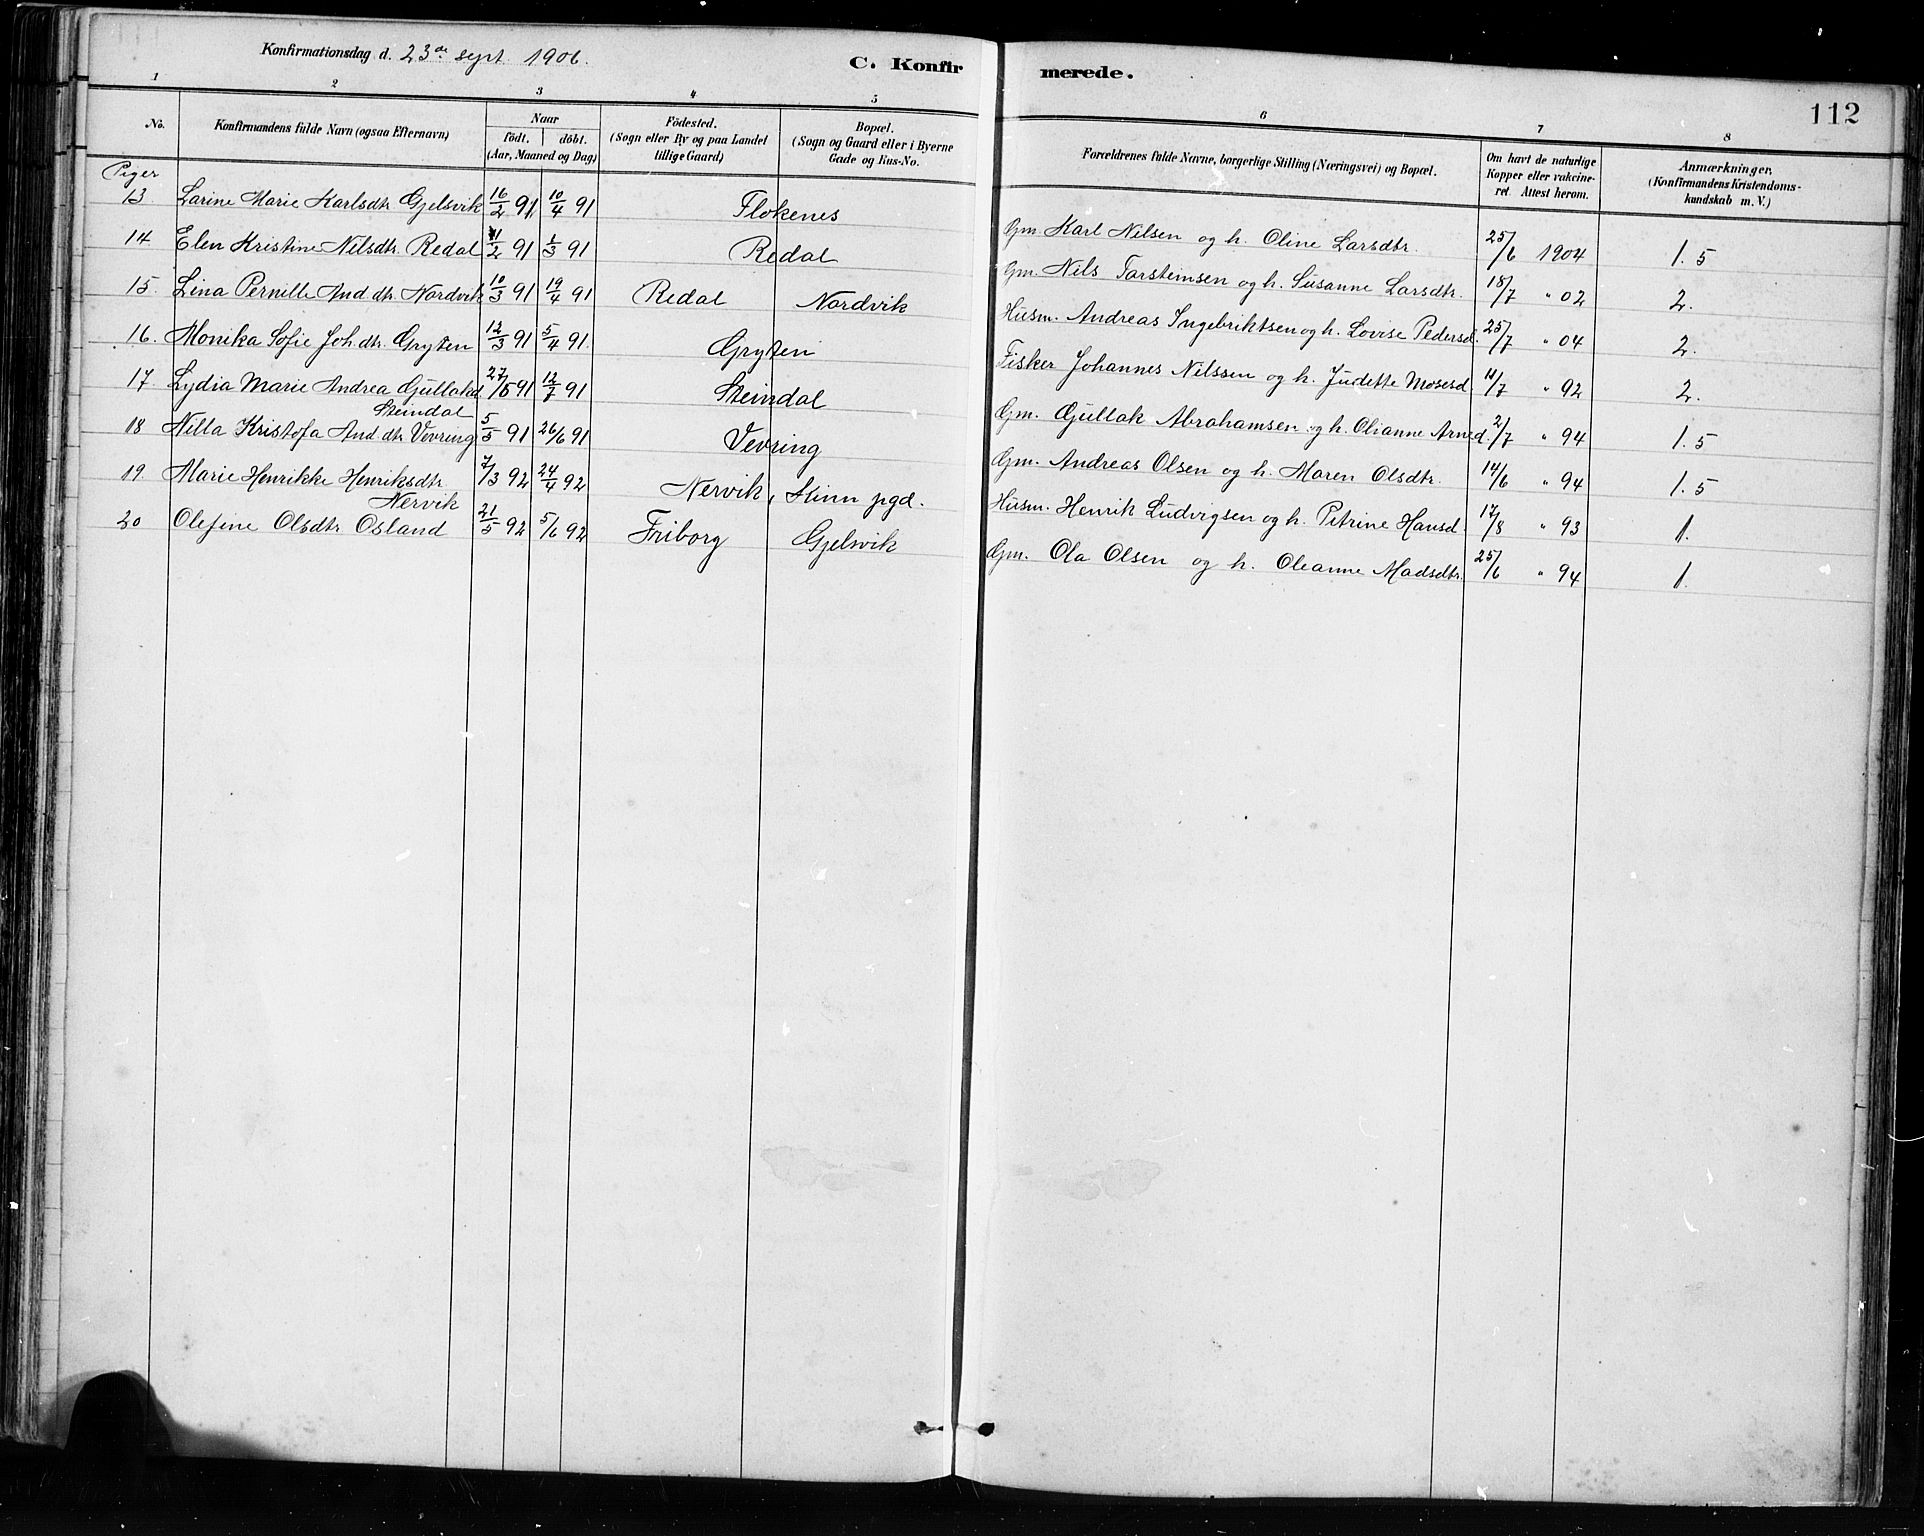 Konfirmationsdag d. 23de sept. 1906.
C. Konfirmerede.
112
1 2 3 4 5 6 7 8
No.
Konfirmandens fulde Navn (ogsaa Efternavn)
Naar
födt. döbt.
(Aar, Maaned og Dag)
Födested.
(Sogn eller By og paa Landet
tillige Gaard)
Bopæl.
(Sogn og Gaard eller i Byerne
Gade og Hus-No.
Forældrenes fulde Navne, borgerlige Stilling (Næringsvei) og Bopæl.
Om havt de naturlige
Kopper eller vakcine-
ret. Attest herom.
Anmærkninger.
(Konfirmandens Kristendoms-
kundskab m. V.)
Piger
13. Larine Marie Karlsdtr. Gjelsvik 16/2 91 10/4 91 Flokenes Gm. Karl Nilsen og h. Oline Larsdtr. 25/6 1904 1.5
14 Elen Kristine Nilsdtr. Redal 11/2 91 1/3 91 Redal Gm. Nils Torsteinsen og h. Susanne Larsdtr. 18/7 " 02 2.
15. Lina Pernille And.dtr. Nordvik 10/3 91 19/4 91 Redal Nordvik Husm. Andreas Ingebriktsen og h. Lovise Pedersd. 25/7 " 04 2.
16. Monika Sofie Joh.dtr. Gryten 12/3 91 5/4 91. Gryten Fisker Johannes Nilssen og h. Judette Mosesd. 11/7 " 92 2.
17 Lydia Marie Andrea Gullakd. 27/5 91 12/7 91 Steindal Gm. Gullak Abrahamsen og h. Olianne Arned. 2/7 " 94 1.5
Steindal
18 Nilla Kristofa And.dtr. Vevring 5/5 91 26/6 91 Vevring Gm. Andreas Olsen og h. Maren Olsdtr. 14/6 " 94 1.5
19. Marie Henrikke Henriksdtr. 7/3 92 24/4 92 Nervik, Kinn pgd. Husm. Henrik Ludvigsen og h. Petrine Hansd. 17/8 " 93 1.
Nervik
20 Olefine Olsdtr. Osland 21/5 92 5/6 92 Friborg Gjelsvik Gm. Ola Olsen og h. Oleanne Madsdtr. 25/6 " 94 1.